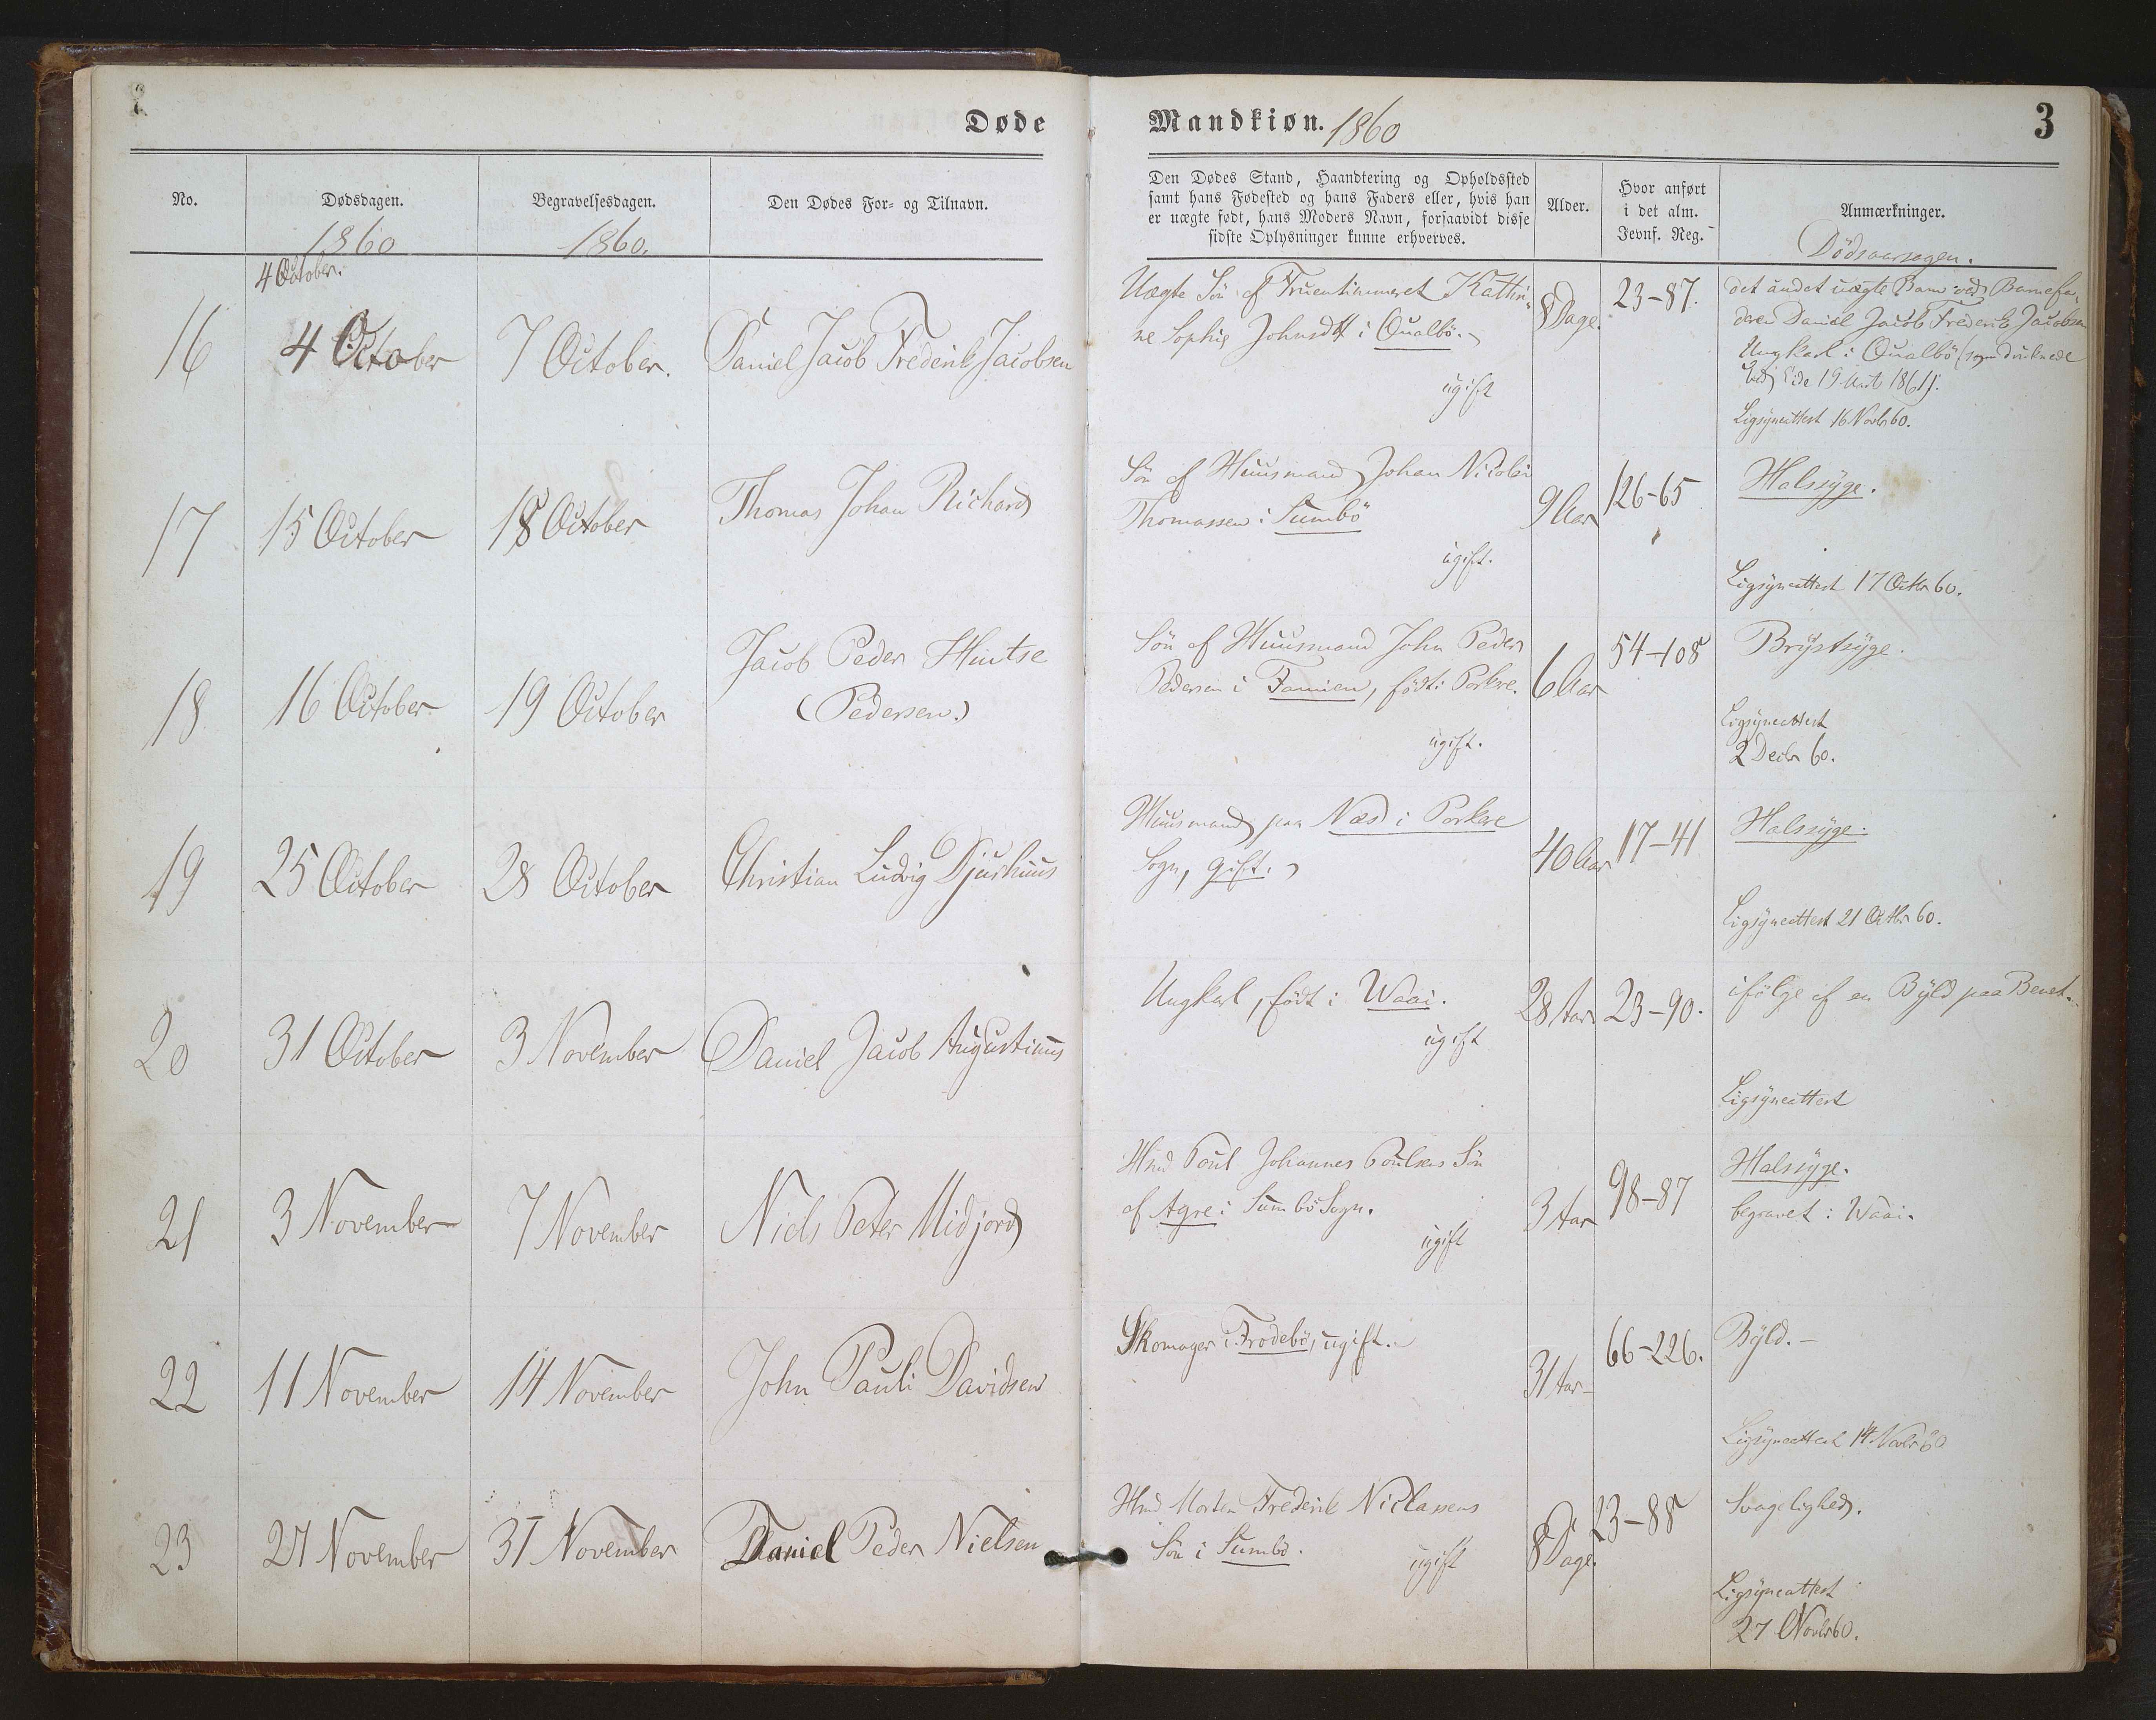 Døde
Mandkiøn. 1860
3
No.
Dødsdagen.
1860
Begravelsesdagen.
1860.
Den Dødes For- og Tilnavn.
Den Dødes Stand, Haandtering og Opholdssted
samt hans Fødested og hans Faders eller, hvis han
er uægte født, hans Moders Navn, forsaavidt disse
sidste Oplysninger kunne erhverves.
Alder.
Hvor anført
i det alm.
Jevnf. Reg.
Anmærkninger.
Dödsaarsagen.
4 October.
16
4 October
7 October.
Daniel Jacob Frederik Jacobsen
Uægte Sön af Fruentimmeret Kathri-
ne Sophie Johnsdtt i Qualbö.
ugift
8 Dage.
23-87.
det andet uægte Barn ved Barnefa-
deren Daniel Jacob Frederik Jacobsen
Ungkarl i Qualbö (som druknede
19 1861).
Ligsyneattest 16 Novbr 60.
17
15 October
18 October
Thomas Johan Richard
Sön af Huusmand Johan Nicolai
Thomassen i Sumbö
ugift.
9 Aar
126-65
Halssyge.
Ligsyneattest 17 Octbr 60.
18
16 October
19 October
Jacob Peder Hintse
(Pedersen.)
Sön af Huusmand John Peder
Pedersen i Famien, födt i Porkere.
ugift.
6 Aar
54-108
Brystsyge.
Ligsyneattest
2 Decbr 60.
19
25 October
28 October
Christian Ludvig Djurhuus
Huusmand paa Næs i Porkere
Sogn, gift.
40 Aar
17-41
Halssyge.
Ligsyneattest 21 Octbr 60.
20
31 October
3 November
Daniel Jacob Augustinus
Ungkarl, födt i Waai.
ugift
28 Aar
23-90.
ifölge af en Byld paa Benet.
Ligsyneattest
21
3 November
7 November
Niels Peter Midjord
Hmd Poul Johannes Poulsens Sön
af Agre i Sumbö Sogn.
ugift
3 Aar
98-87
Halssyge.
begravet i Waai.
22
11 November
14 November
John Pauli Davidsen
Skomager i Frodebö, ugift.
31 Aar
66-226.
Byld.
Ligsyneattest 14 Novbr 60
23
27 November
31 November
Daniel Peder Nielsen
Hmd Morten Frederik Niclassens
Sön i Sumbö.
ugift
8 Dage.
23-88
Svagelighed.
Ligsyneattest
27 Novbr 60.